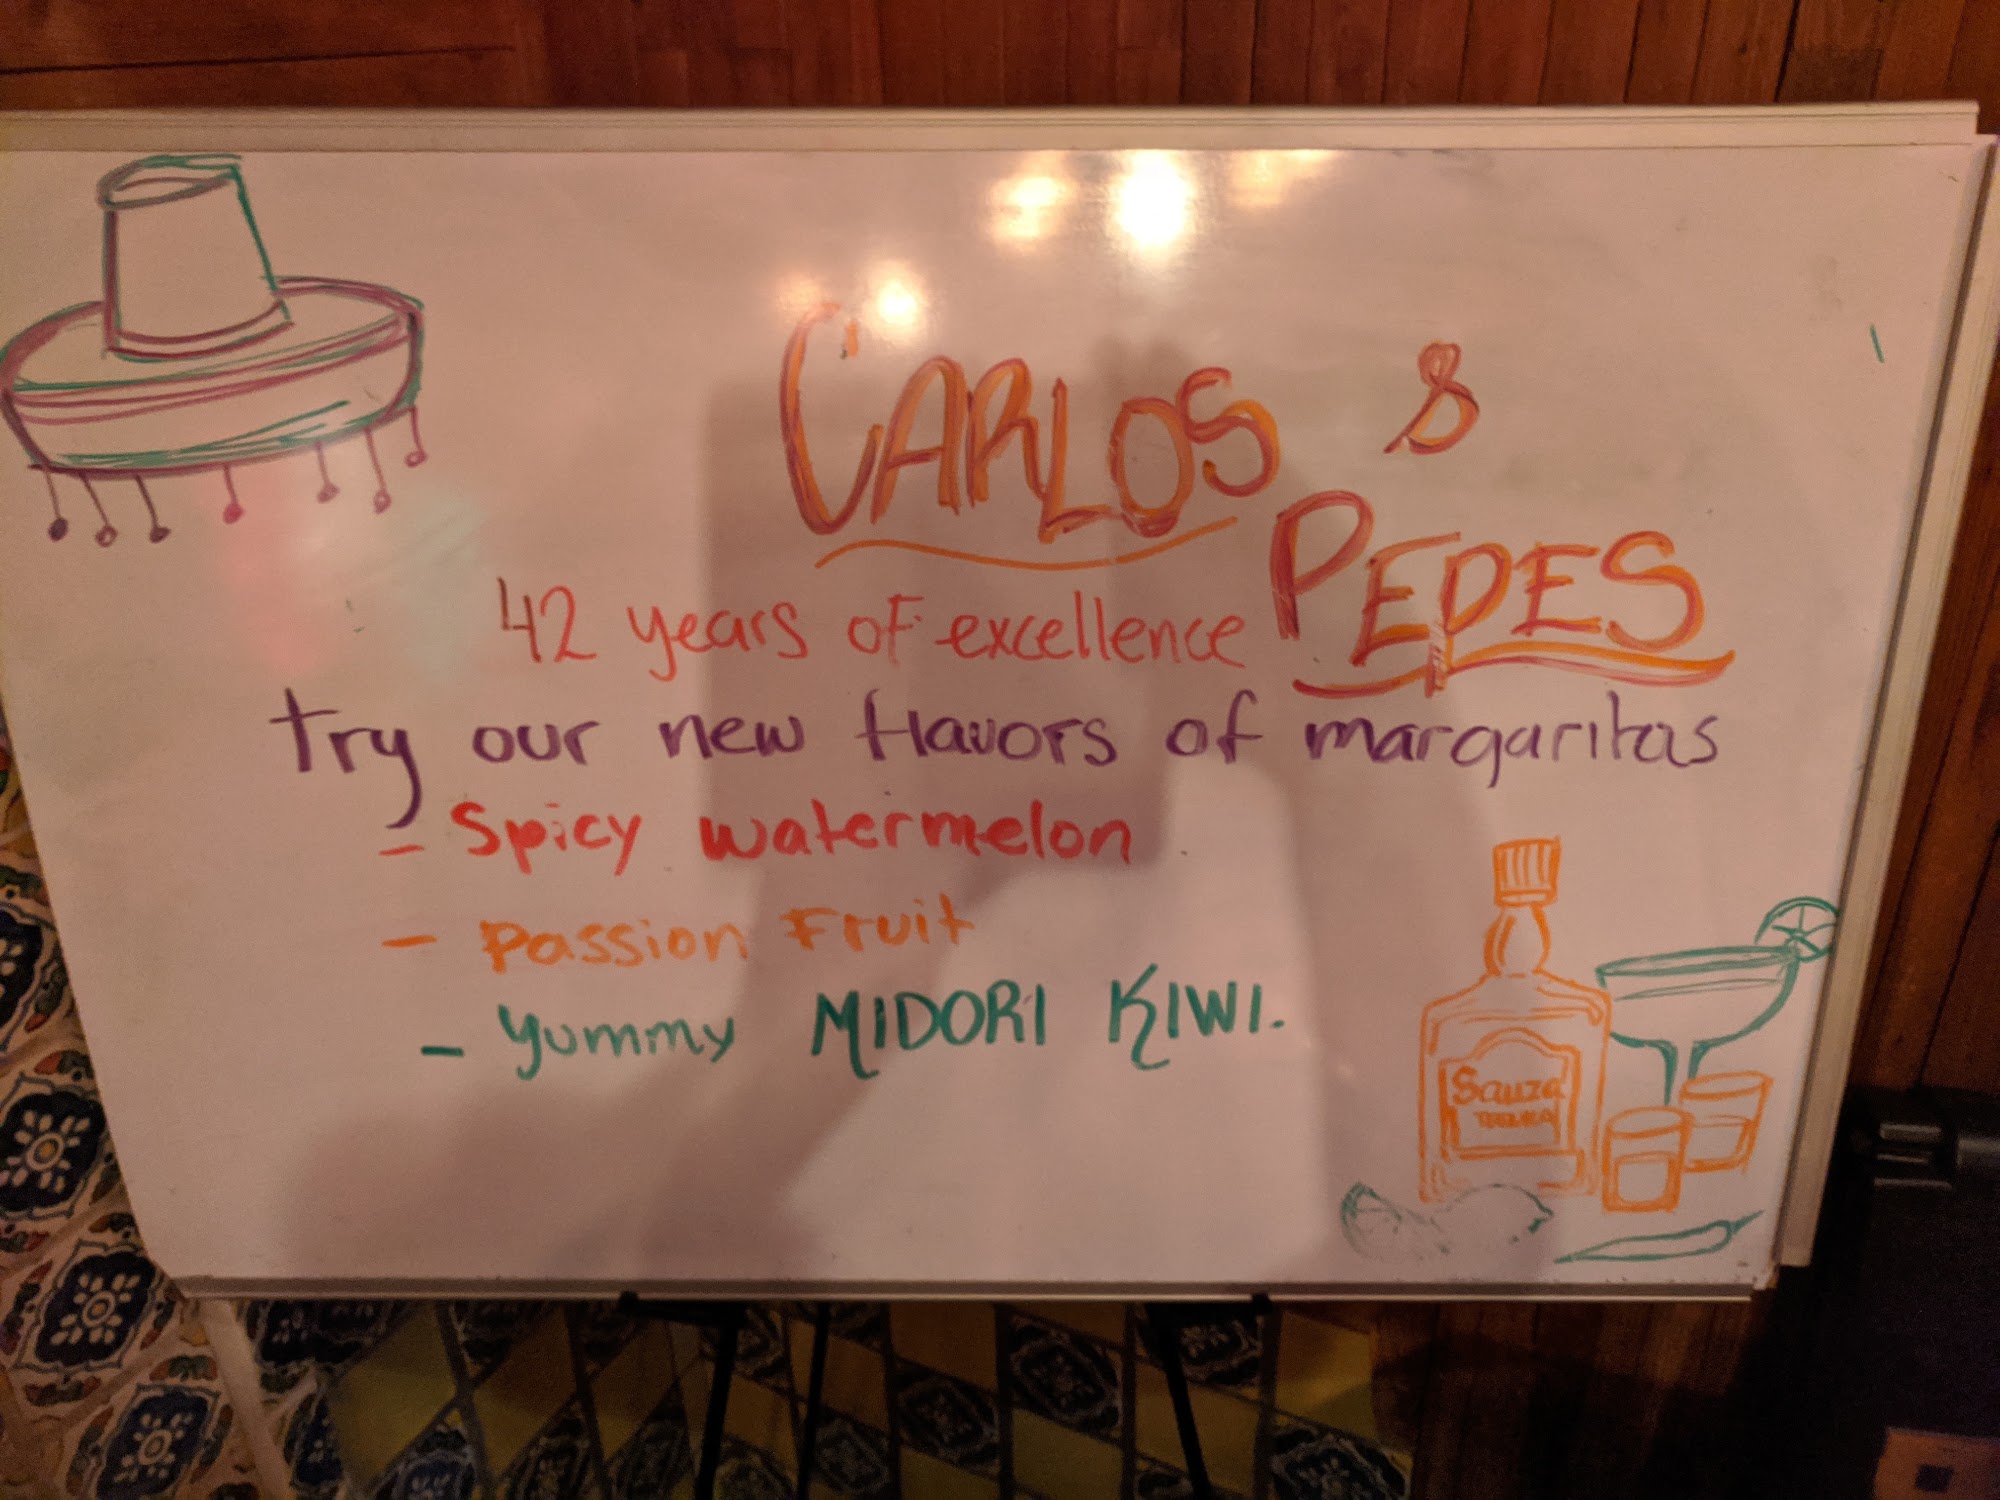 CARLOS &
PEPES
42 years of excellence
try our new flavors of margaritas
- Spicy watermelon
- Passion Fruit
- yummy MIDORI KIWI.
Sauza
TEQUILA